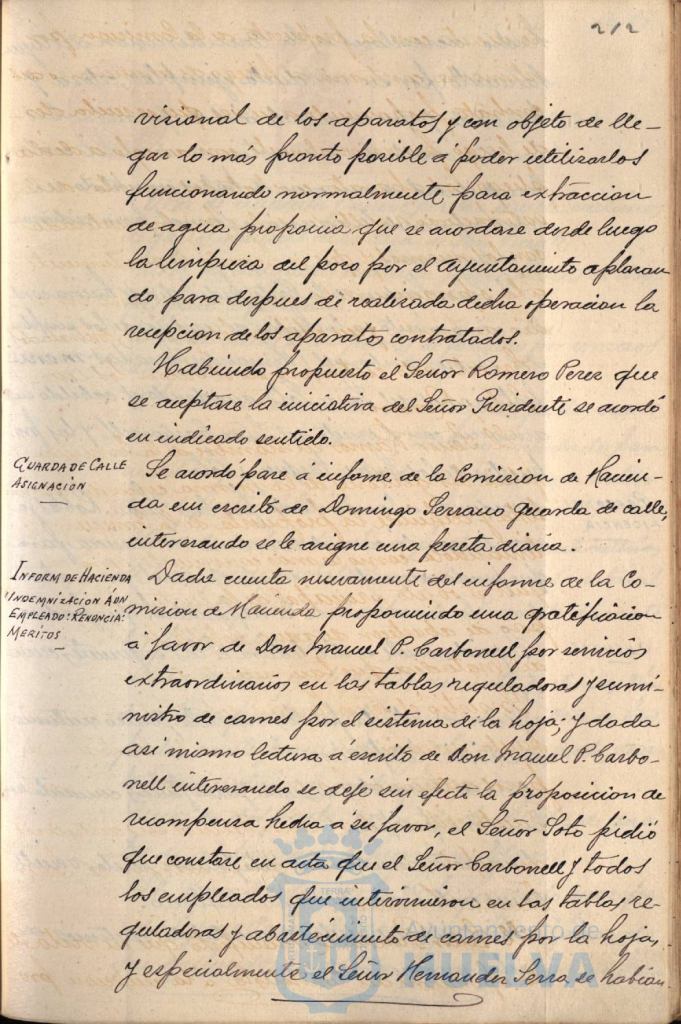 212
visional de los aparatos y con objeto de lle-
gar lo más pronto posible á poder utilizarlos
funcionando normalmente para extraccion
de agua proponia que se acordase desde luego
la limpieza del pozo por el Ayuntamiento aplazan
do para despues de realizada dicha operacion la
recepcion de los aparatos contratados.
Habiendo propuesto el Señor Romero Perez que
se aceptase la iniciativa del Señor Presidente se acordó
en indicado sentido.
GUARDA DE CALLE
ASIGNACIÓN
Se acordó pase á informe de la Comision de Hacien-
da un escrito de Domingo Serrano guarda de calle,
interesando se le asigne una peseta diaria.
INFORM DE HACIENDA
INDEMNIZACION Á UN
EMPLEADO: RENUNCIA:
MERITOS
Dada cuenta nuevamente del informe de la Co-
mision de Hacienda proponiendo una gratificacion
á favor de Don Manuel P. Carbonell por servicios
extraordinarios en las tablas reguladoras y sumi-
nistro de carnes por el sistema de la hoja; y dada
asi mismo lectura á escrito de Don Manuel P. Carbo-
nell interesando se deje sin efecto la proposicion de
recompensa hecha á su favor, el Señor Soto pidió
que constase en acta que el Señor Carbonell y todos
los empleados que intervinieron en las tablas re-
guladoras y abastecimiento de carnes por la hoja,
y especialmente el Señor Hernandez Serra, se habian
TERRAE
Ayuntamiento de
HUELVA